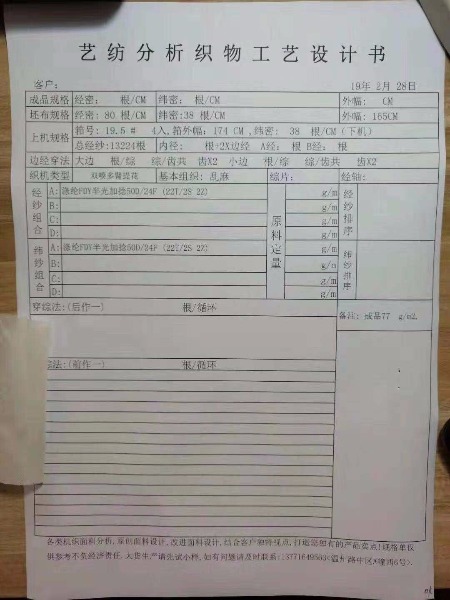 艺纺分析织物工艺设计书
客户： 19年 2月 28日
成品规格 经密： 根/CM 纬密： 根/CM 外幅： CM
坯布规格 经密：80 根/CM 纬密:38 根/CM 外幅：165CM
上机规格 筘号：19.5 # 4入,筘外幅：174 CM ,纬密： 38 根/CM（下机）
总经纱:13224根 内经： 根+2X边经 A经： 根 B经： 根
边经穿法 大边 根/综 综/齿共 齿X2 小边 根/综 综/齿共 齿X2
织机类型 双喷多臂提花 基本组织：乱麻 综片： 经轴：
经纱组合 A:涤纶FDY半光加捻50D/24F (22T/2S 2Z) 原料定量 g/m 经纱排序
B: g/m
C: g/m
D: g/m
纬纱组合 A:涤纶FDY半光加捻50D/24F (22T/2S 2Z) g/m 纬纱排序
B: g/m
C: g/m
D: g/m
穿综法:(后作一) 根/循环 备注：成品77 g/m2,
综法:(前作一) 根/循环
各类机织面料分析,原创面料设计,改进面料设计,结合客户独特视点,打造您独有的产品卖点!规格单仅
供参考不负经济责任,大货生产请先试小样,如有问题请及时联系: